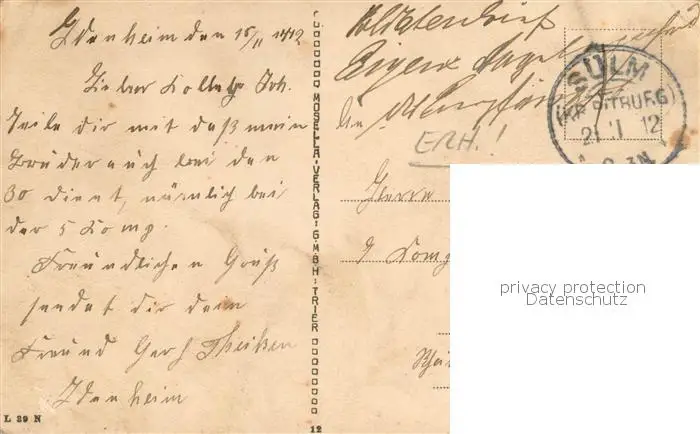 Idenheim den 15/11 1912
Lieber Kollege Joh.
Teile dir mit daß mein
Bruder auch bei den
30 dient, nämlich bei
der 5 Komp.
Freundlichen Gruß
sendet dir dein
Freund Theisen
Idenheim
L 89 N
MOSELLA-VERLAG G.M.B.H. TRIER
12
Soldatenbrief
Eigene Angelegenheit
An
Empfängers
SÜLM
(KR. BITBURG)
12
ERH.!
Herrn
privacy protection
Datenschutz